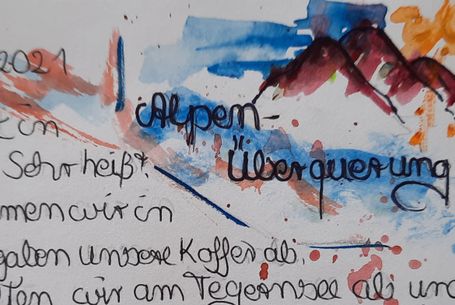 2021
Alpen-
Überquerung
in
Sehr heiß!
men wir in
gaben unsere Koffer ab.
ten wir am Tegernsee ab und